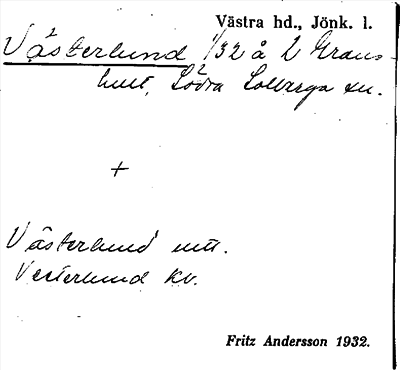 Västra hd., Jönk. l.
Västerlund 1/32 å 2 Grans-
hult, Södra Solberga sn.
+
Västerlund utt.
Vesterlund kv.
Fritz Andersson 1932.